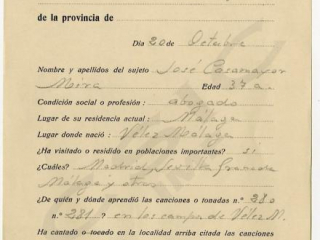 de la provincia de
Dia 20 de Octubre
Nombre y apellidos del sujeto José Casamayor
Mira Edad 37 a.
Condición social o profesión: abogado
Lugar de su residencia actual: Málaga
Lugar donde nació: Vélez Málaga
¿Ha visitado o residido en poblaciones importantes? si
¿Cuáles? Madrid, Sevilla Granada
Málaga y otras
¿De quién y dónde aprendió las canciones o tonadas n.º 280
n.º 281 ? en los campos de Vélez M.
Ha cantado o tocado en la localidad arriba citada las canciones